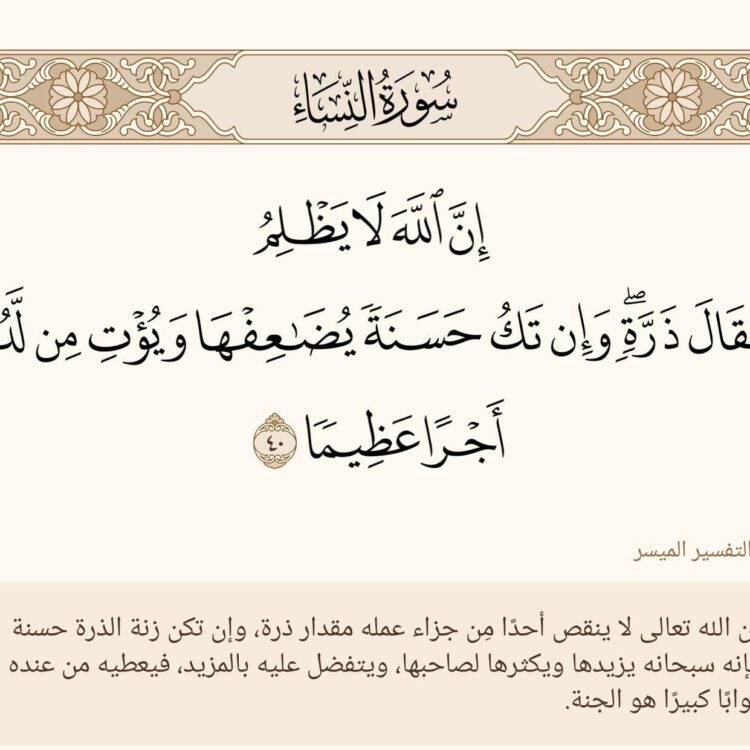 سُورَةُ النِّسَاءِ
إِنَّ ٱللَّهَ لَا يَظۡلِمُ
قَالَ ذَرَّةٖۖ وَإِن تَكُ حَسَنَةٗ يُضَٰعِفۡهَا وَيُؤۡتِ مِن لَّدُ
أَجۡرًا عَظِيمٗا ٤٠
التفسير الميسر
ن الله تعالى لا ينقص أحدًا مِن جزاء عمله مقدار ذرة، وإن تكن زنة الذرة حسنة
إنه سبحانه يزيدها ويكثرها لصاحبها، ويتفضل عليه بالمزيد، فيعطيه من عنده
وابًا كبيرًا هو الجنة.